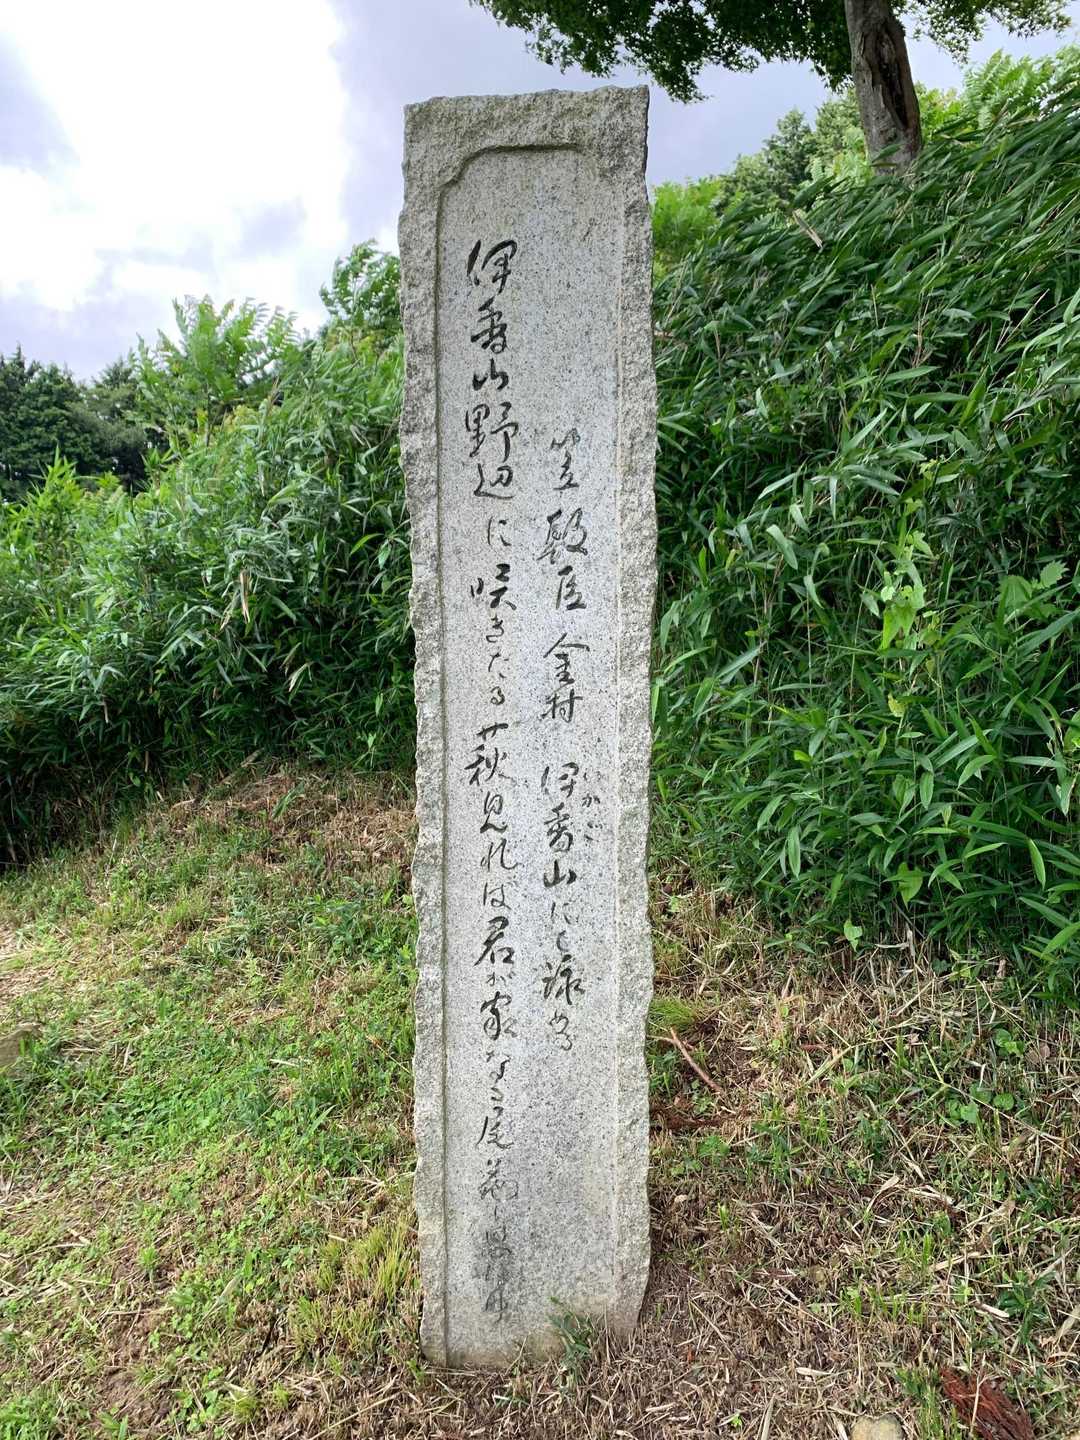 笠朝臣金村 伊香山にて詠める
いかご
伊香山野辺に咲きたる萩見れば君が家なる尾花し思ほゆ